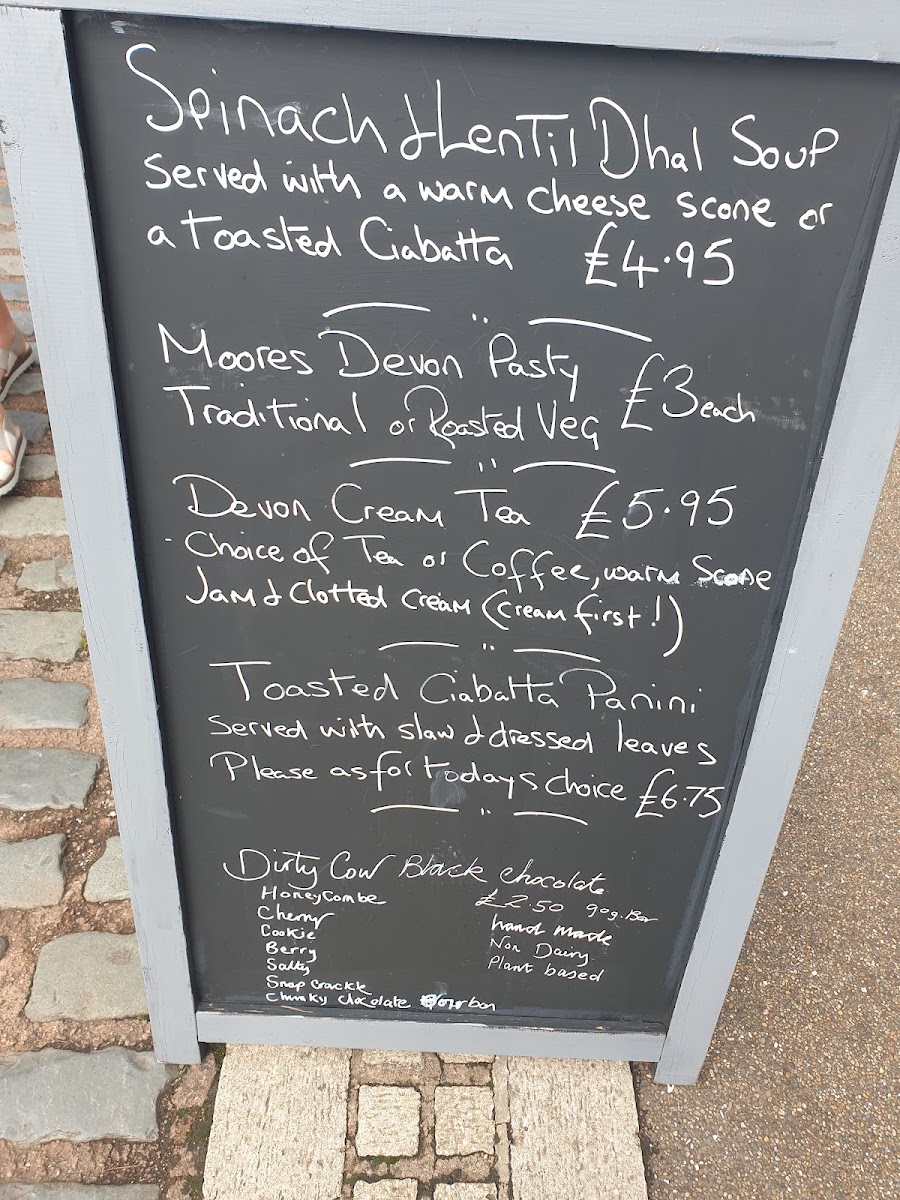 Spinach & Lentil Dhal Soup
Served with a warm cheese scone or
a Toasted Ciabatta £4.95
Moores Devon Pasty £3 each
Traditional or Roasted Veg
Devon Cream Tea £5.95
- Choice of Tea or Coffee, warm Scone
Jam & Clotted cream (cream first!)
Toasted Ciabatta Panini
Served with slaw & dressed leaves
Please as for todays choice £6.75
Dirty Cow Black chocolate
HoneyCombe £2.50 90g. Bar
Cherry hand made
Cookie Non Dairy
Berry Plant based
Salty
Snap Crackle
Chunky chocolate Bourbon